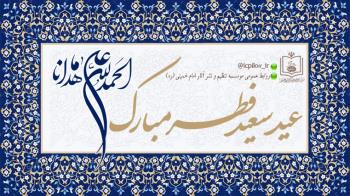 @icpikw_ir
روابط عمومی موسسه تنظیم و نشر آثار امام خمینی (ره)
الحمدلله علی ما هدانا
عید سعید فطر مبارک